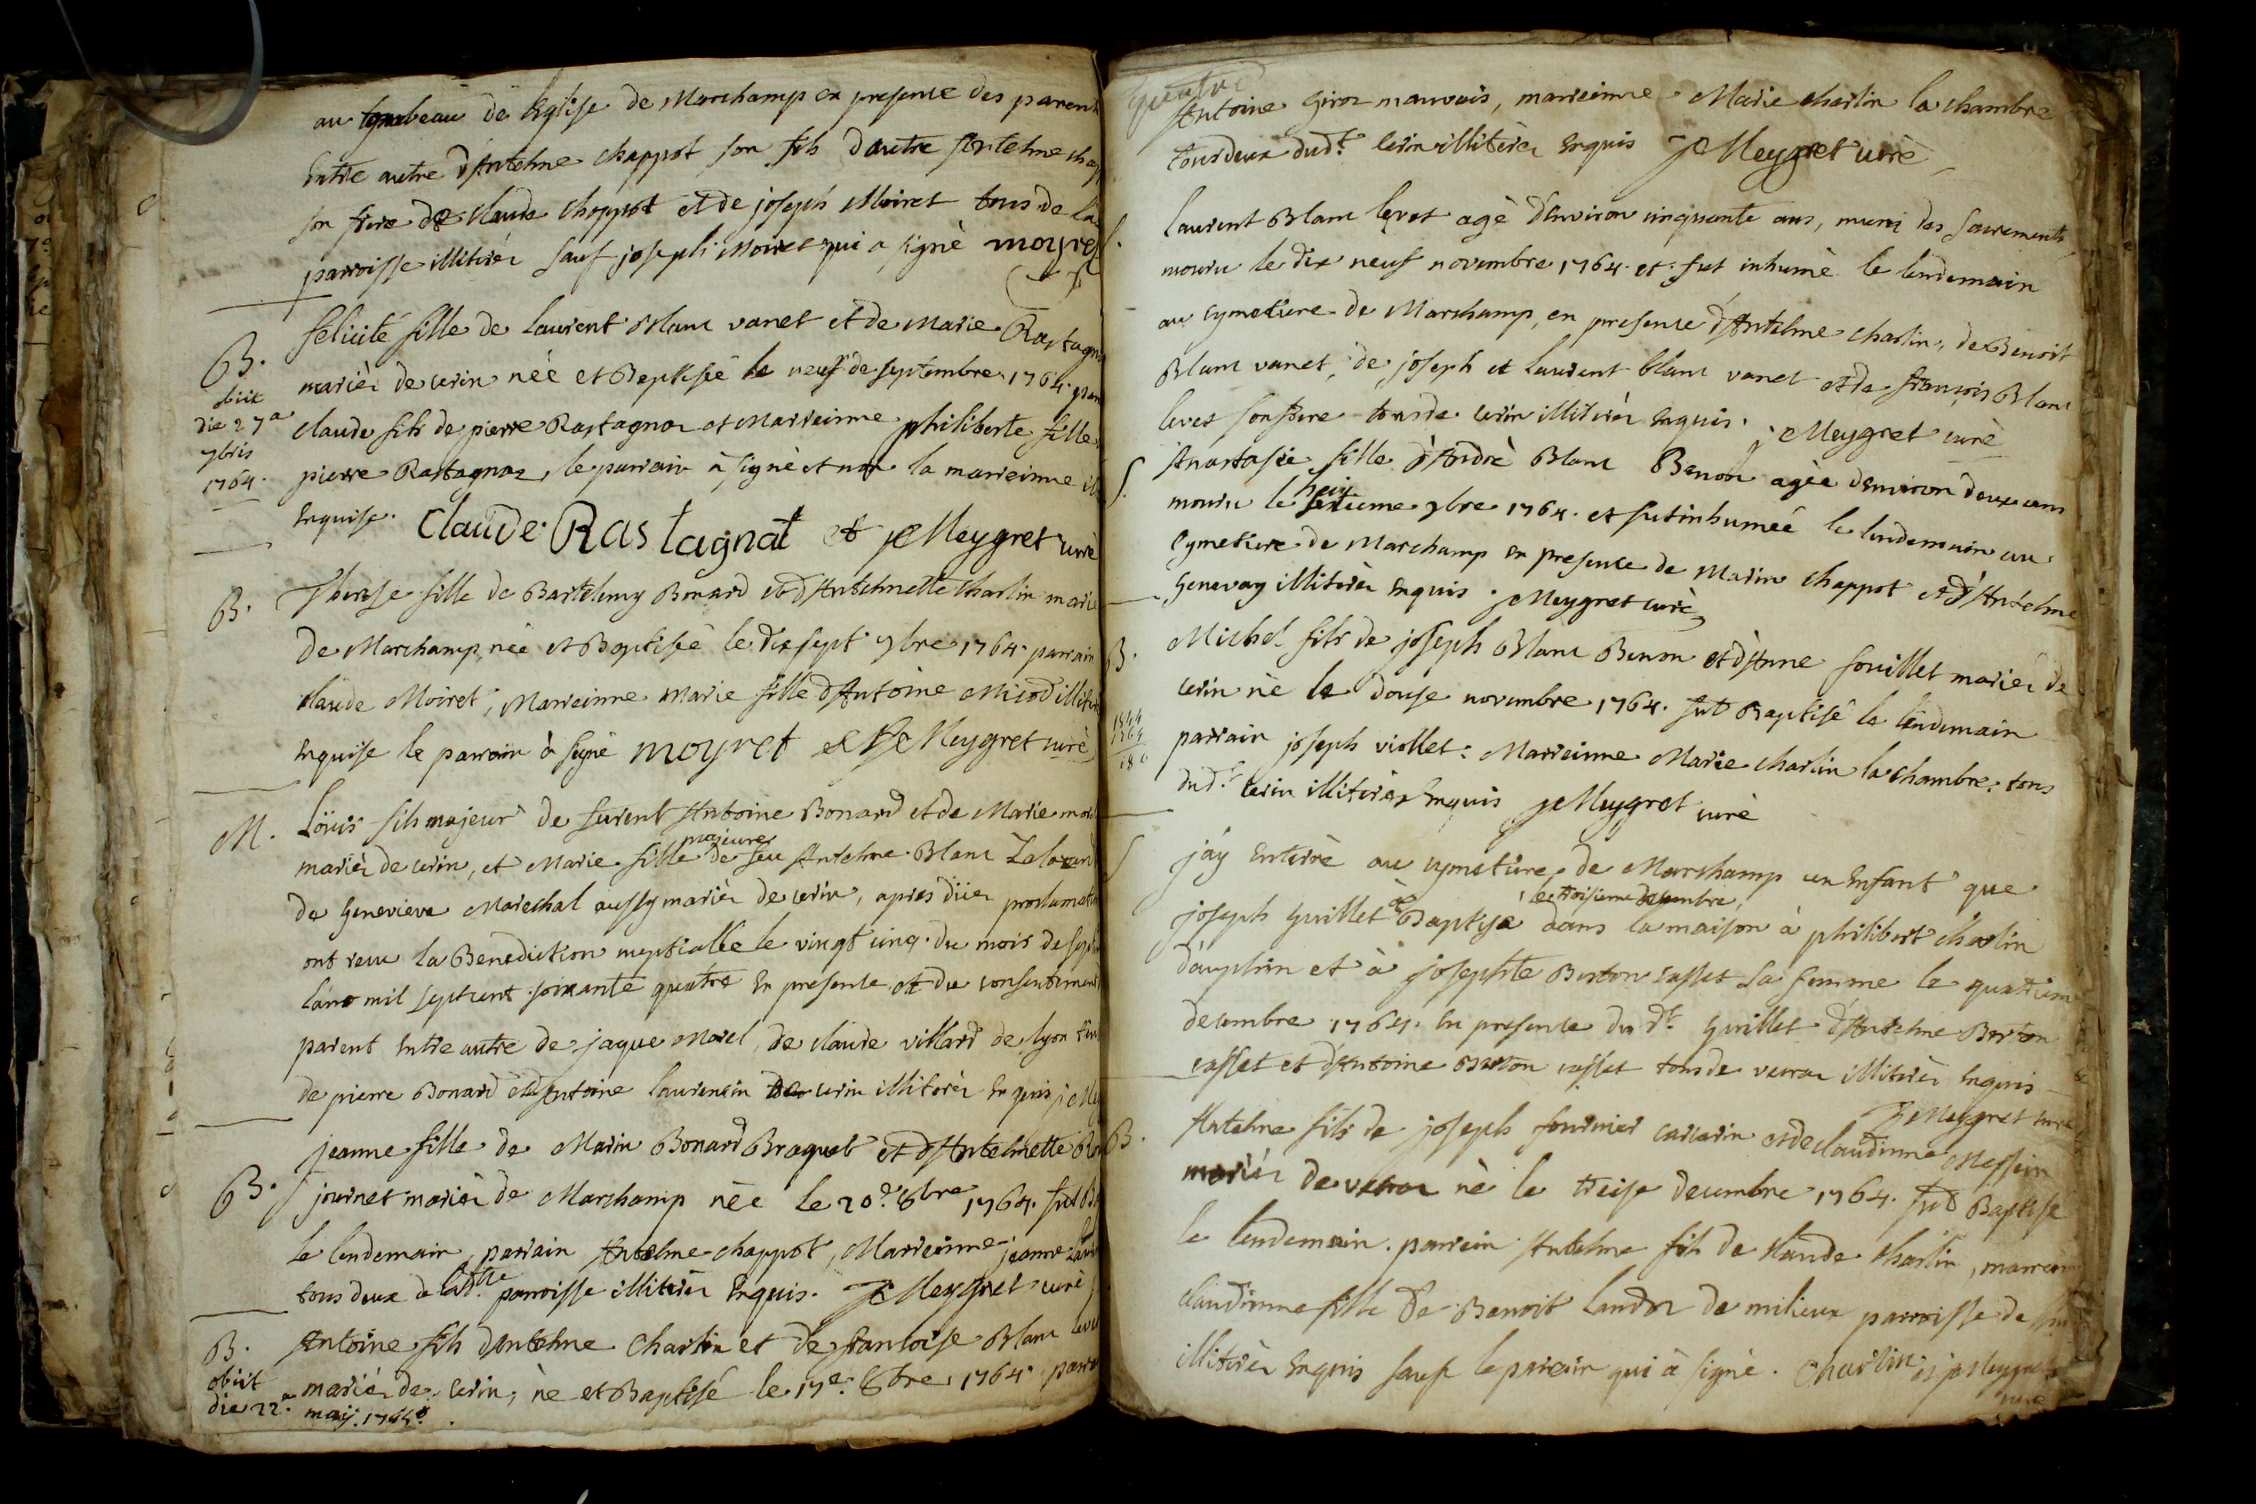 au tombeau de Eglise de Marchamp en presence des parents
Entre autre d'Antelme chappot son fils d'autre Antelme chap
son frere de claude chappot et de joseph Moiret tous de la
parroisse illiterés sauf joseph Moiret qui a signé moyret
B. felicité fille de Laurent Blanc vanet et de Marie Rastagn
obiit mariés de cerin née et Baptisée le neuf de septembre 1764. par
die 27a claude fils de pierre Rastagnat et Marreinne philiberte fille
7bris pierre Rastagnat, le parrain à signé et non la marreinne il
1764. Enquise. Claude Rastagnat et je Meygret curé
B. Therese fille de Bartelemy Bonard et d'Antelmette Charlin marié
de Marchamp née et Baptisée le dix sept 7bre 1764. parrain
claude Moiret, Marreinne Marie fille d'Antoine Micod illiter
Enquise le parrain à signé moyret et je Meygret curé
M. Loüis fils majeur de furent Antoine Bonard et de Marie mor
majeure
mariés de cerin, et Marie fille de feu Antelme Blanc
de Genevieve Marechal aussy mariés de cerin, apres düer proclamati
ont recu la Benediction nuptialle le vingt cinq du mois de sept
l'ano mil septcent soixante quatre En presence et du consentement
parent Entre autre de jaque Morel, de claude villard de lyon
de pierre Bonard et d'Antoine laurencin de cerin illiterés Enquis je Me
B. jeanne fille de Marin Bonard Braquet et d'Antelmette
journet mariés de Marchamp née le 20e 8bre 1764. fut B
le lendemain, parrain Antelme chappot, Marreinne jeanne
tous deux de ladte parroisse illiterés Enquis. je Meygret curé
B. Antoine fils d'Antelme Charlin et de francoise Blanc
obiit mariés de cerin, né et Baptisé le 17e 8bre 1764. parr
die 22a maij
Antoine Giroz mauvais, marreinne Marie charlin la chambre
tous deux dudt. cerin illiterés Enquis je Meygret curé
S. laurent Blanc levet agé d'Environ cinquante ans, muni des sacrements
mouru le dix neuf novembre 1764. et fut inhumé le lendemain
au cymetiere de Marchamp, en presence d'Antelme charlin, de Benoit
Blanc vanet, de joseph et laurent blanc vanet et de françois Blanc
levet son frere tous de cerin illiterés Enquis. je Meygret curé
S. Anastasie fille d'André Blanc Benon agée denviron deux ans
mouru le 9bre 1764. et fut inhumée le lendemain au
cymetiere de Marchamp en presence de Marin chappot et d'Antelme
Genevay illiterés Enquis je Meygret curé
B. Michel fils de joseph Blanc Benon et d'Anne fouillet mariés de
cerin né le douse novembre 1764. fut Baptisé le lendemain
parrain joseph viollet: Marreinne Marie charlin la chambre: tous
dudt. cerin illiterés Enquis je Meygret curé
S j'ay Enterré au cymetiere de Marchamp un Enfant que
le troisieme decembre,
joseph Guillet à Baptisé dans la maison à philibert charlin
dauphin et à josephte Berton casset sa femme le quatriem
decembre 1764. En presence du dt. Guillet d'Antelme Berton
casset et d'Antoine Berton casset tous de illiterés Enquis
je Meygret curé
B. Antelme fils de joseph fournier et de claudinne Messin
mariés de né le treise decembre 1764. fut Baptisé
le lendemain. parrein Antelme fils de claude charlin, marrein
claudinne fille de Benoit de milieux parroisse de
illiterés Enquis sauf le parrain qui à signé. Charlin et je Meygret
curé